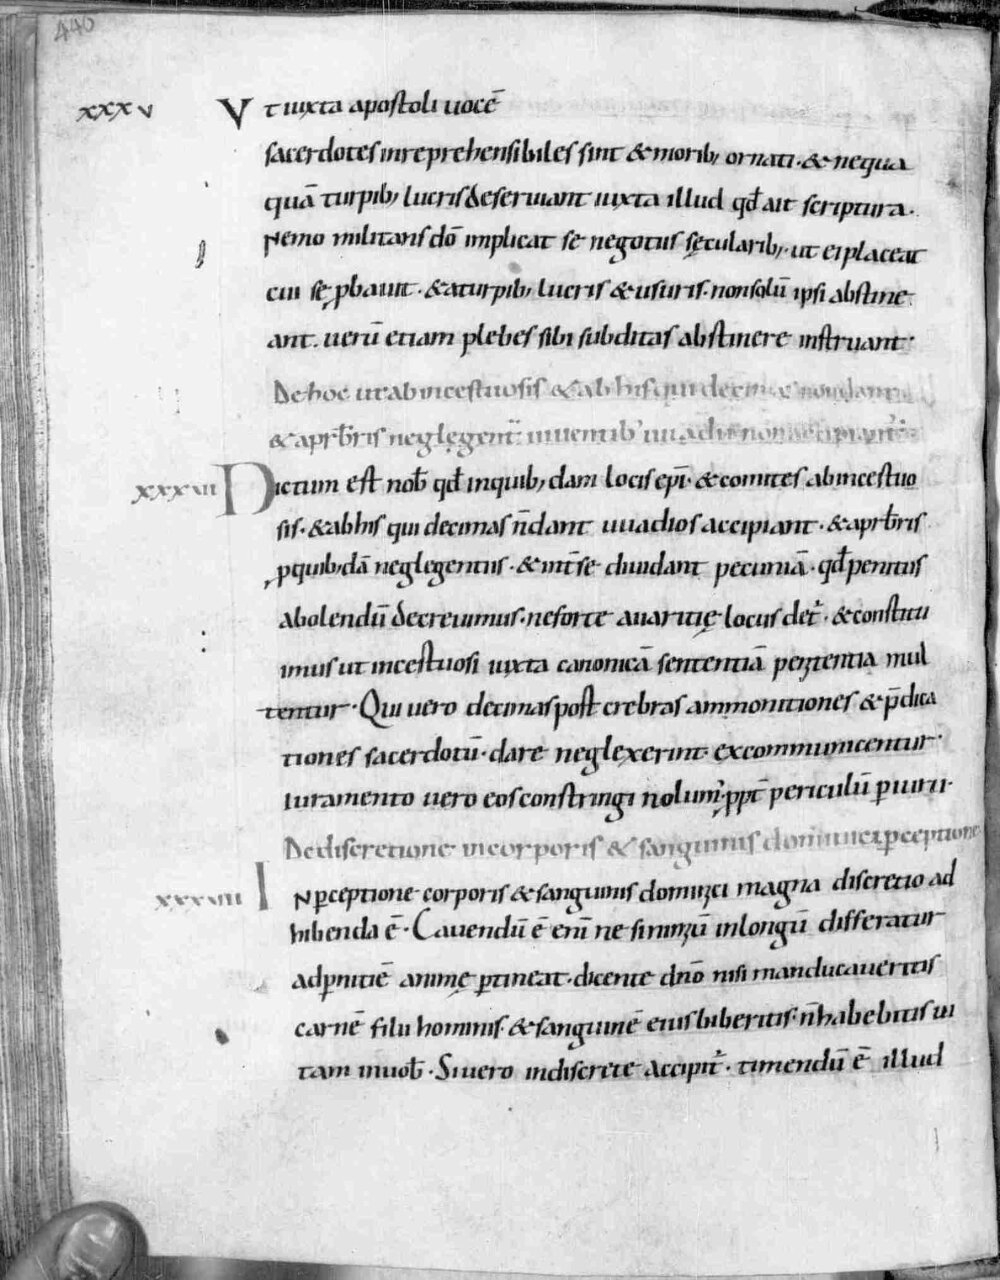 440
xxxv Vt iuxta apostoli uocē
sacerdotes inreprehensibiles sint & morib; ornati · & nequa
quā turpib; lucris deseruiant iuxta illud qđ ait scriptura ·
Nemo militans dō implicat se negotiis sęcularib; · ut ei placeat
cui se ꝓbauit · & a turpib; lucris & usuris · non solū ipsi abstine
ant · uerū etiam plebes sibi subditas abstinere instruant ·
De hoc ut ab incestuosis & ab his qui decimas non dant
& a prb̄ris neglęgent̄ uiuentib' uuadii non accipiant̄
xxxvi Dictum est nob̄ qđ in quib;dam locis ep̄i · & comites ab incestuo
sis · & ab his qui decimas n̄ dant uuadios accipiant · & a prb̄ris
ꝓ quib;dā neglegentiis · & int̄ se diuidant pecuniā · qđ penitus
abolendū decreuimus · ne forte auaritię locus det̄ · & constitu
imus ut incestuosi iuxta canonicā sententiā penitentia mul
tentur · Qui uero decimas post crebras ammonitiones & p̄dica
tiones sacerdotū · dare neglexerint · excommunicentur ·
Iuramento uero eos constringi nolum' · ꝓpt̄ periculū ꝑiurii ·
De discretione in corporis & sanguinis domini ꝑceptione
xxxvii IN ꝑceptione corporis & sanguinis dominici magna discretio ad
hibenda ē · Cauendū ē enī ne si nimiū in longū differatur
ad ꝑnitiē animę ꝑtineat · dicente dn̄o nisi manducaueritis
carnē filii hominis · & sanguinē eius biberitis · n̄ habebitis ui
tam in uob̄ · Si uero indiscrete accipit̄ · timendū ē illud